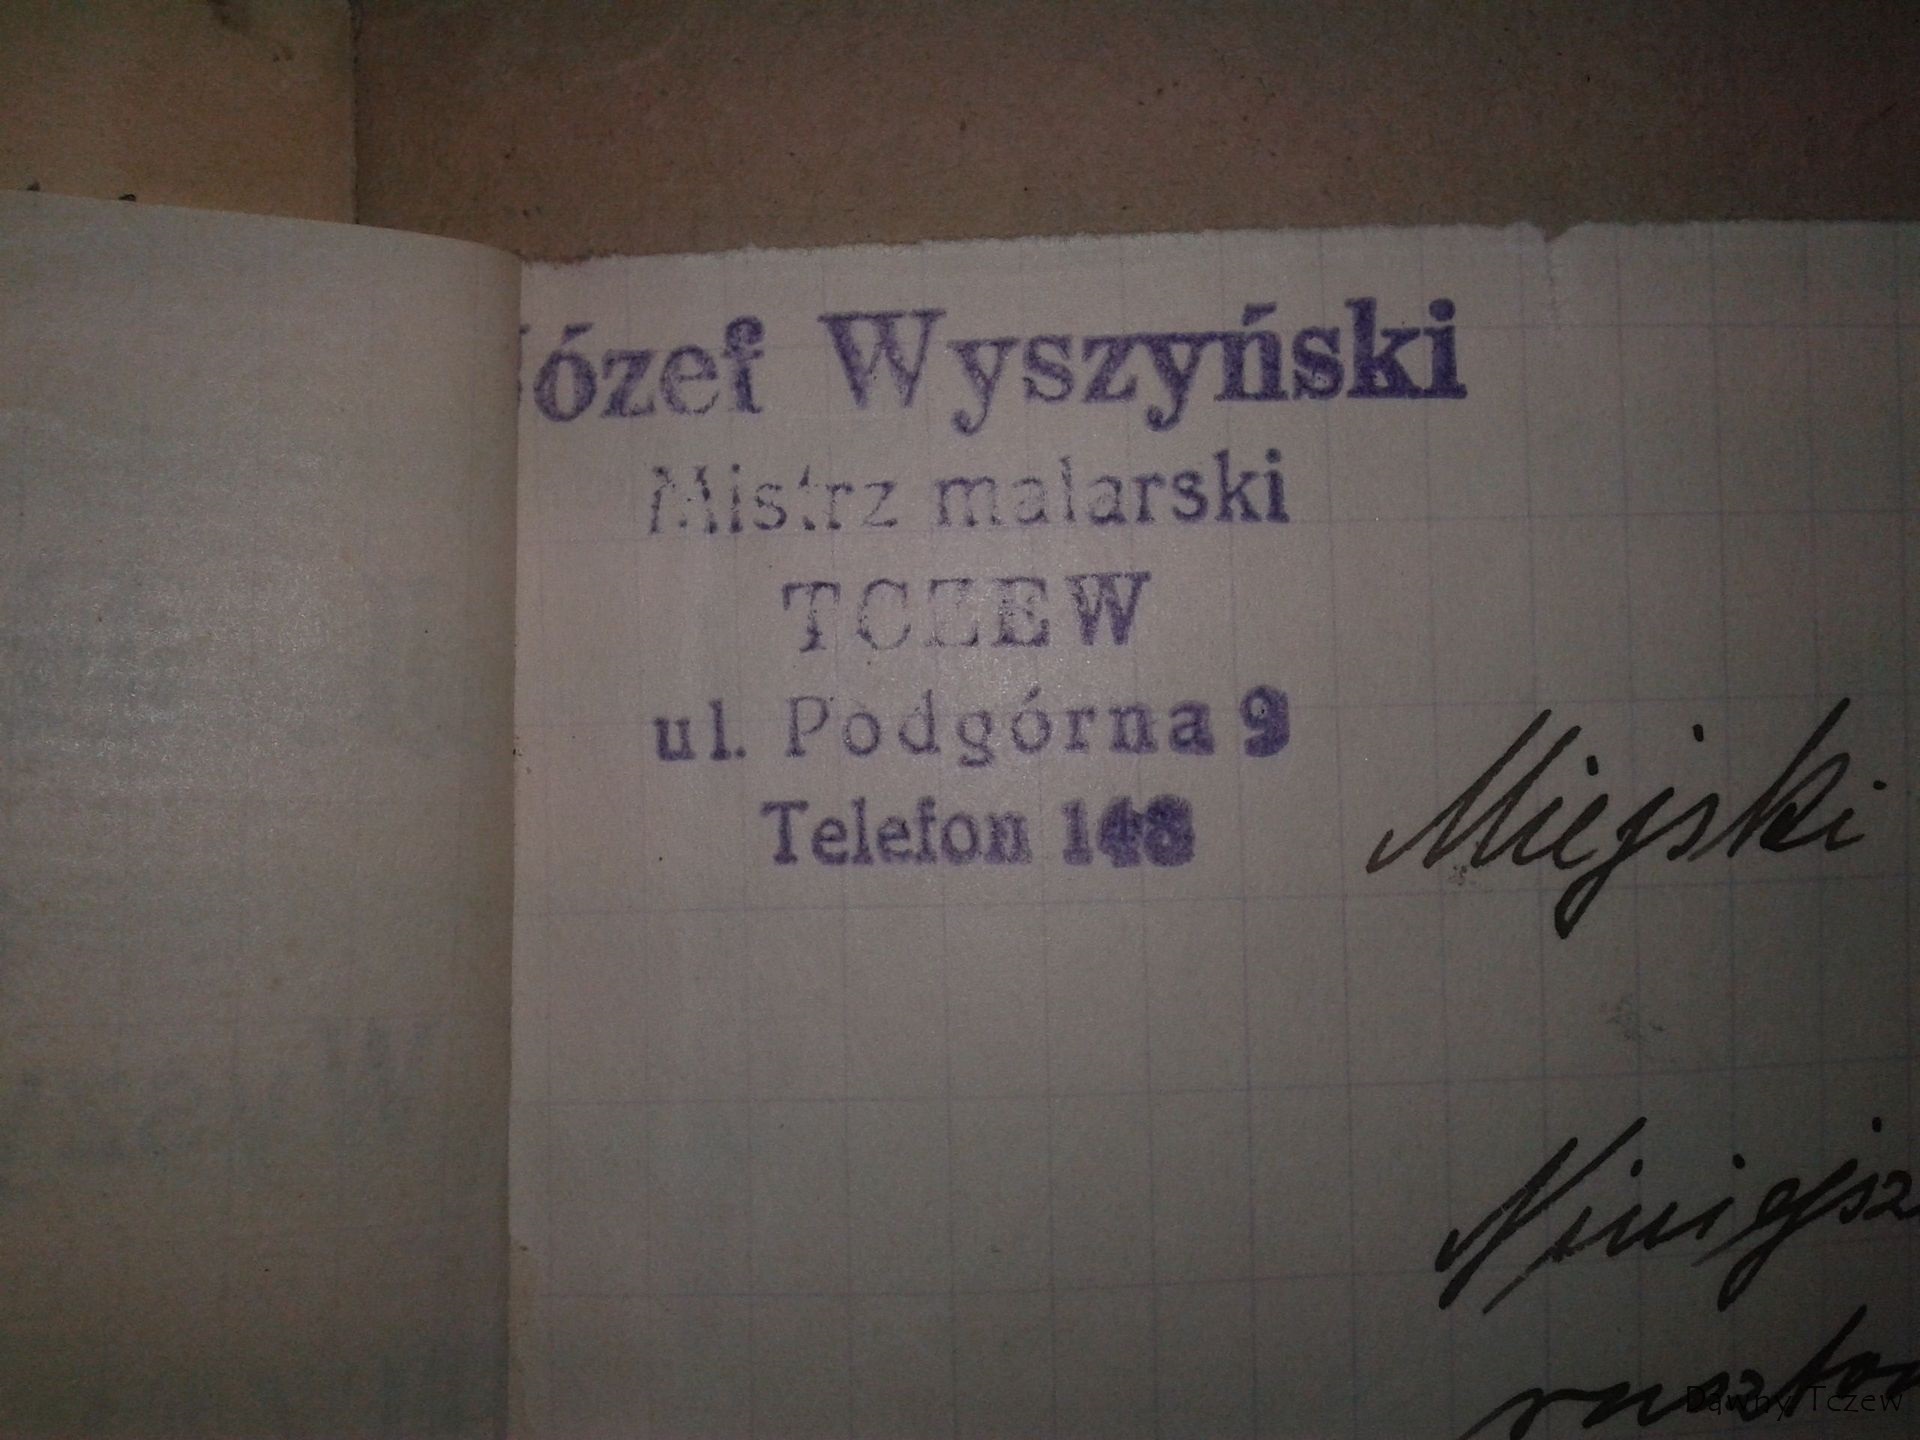 Józef Wyszyński
Mistrz malarski
TCZEW
ul. Podgórna 9
Telefon 148
Miejski
Niniejsz
Dawny Tczew